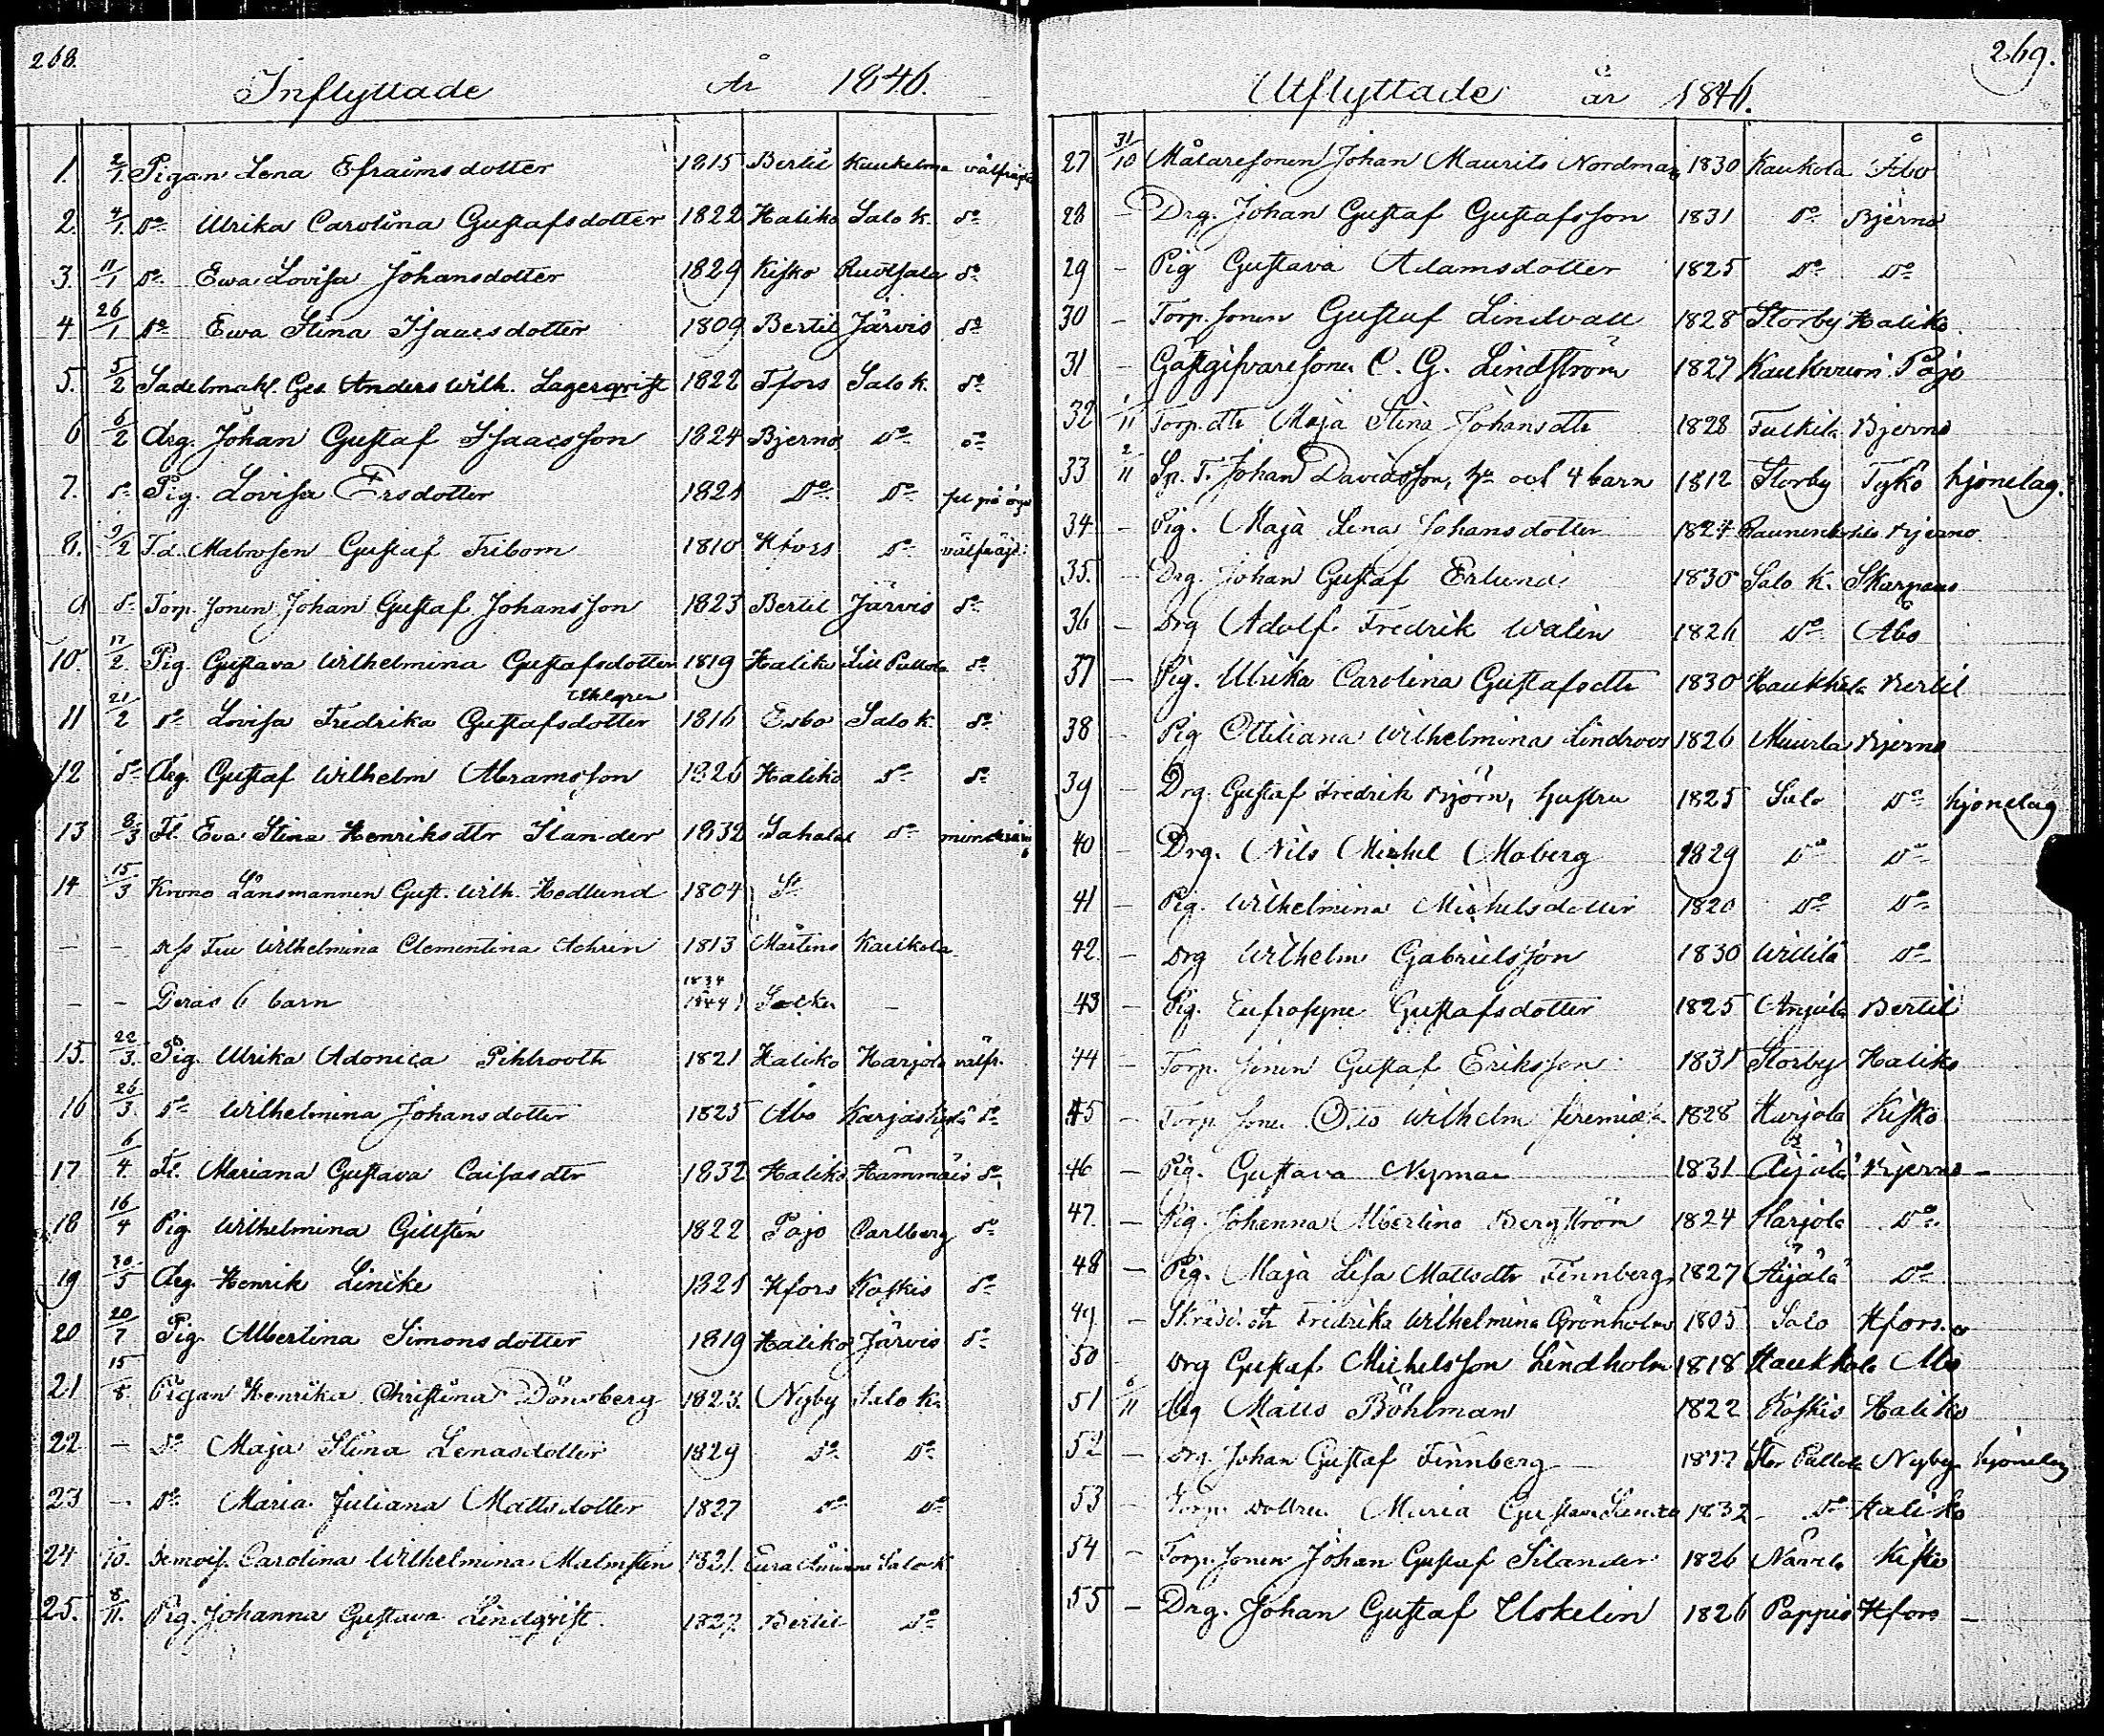 268.
Inflyttade År 1846.
1. 2/1. Pigan Lena Efraimsdotter 1815 Bertil Kaukelma välfräjd
2. 4/1. Do Ulrika Carolina Gustafsdotter 1822 Haliko Salo k. do
3. 11/1 Do Ewa Lovisa Johansdotter 1829 Kisko Ruotsala do
4 26/1 Do Ewa Stina Isaacsdotter 1809 Bertil Järvis do
5. 5/2 Sadelmak. Ges. Anders Wilh. Lagerqvist 1822 Tfors Salo k. do
6 6/2 drg. Johan Gustaf Isaacsson 1824 Bjerno Do do
7. do Pig. Lovisa Ersdotter 1821 Do Do fel på öga
8. 9/2 Fd. Matrosen Gustaf Fribom 1810 Hfors Do välfräjd.
9 do Torp. sonen Johan Gustaf Johansson 1823 Bertil Järvis do
10. 17/2. Pig. Gustava Wilhelmina Gustafsdotter 1819 Haliko Lill Pullola do
11 21/2 Do Lovisa Fredrika Gustafsdotter Uhlgren 1816 Esbo Salo k. do
12 do drg. Gustaf Wilhelm Abramsson 1826 Haliko Do do
13 8/3 Fl. Eva Stina Henriksdtr Ilander 1832 Sahalax Do minderårig
14 15/3 Krono Länsmannen Gust. Wilh. Hedlund 1804 St
– – dess Fru Wilhelmina Clementina Achrén 1813 Mårtens Kaukola
– – Deras 6 barn 1834 1844 Socken –
15. 22/3. Pig. Ulrika Adonica Pihlrooth 1821 Haliko Harjola välfr.
16 26/3. Do Wilhelmina Johansdotter 1825 Åbo Karjaskylä do
17 6/4 Fl. Mariana Gustava Caisasdtr 1832 Haliko Hämmäis do
18 16/4 Pig Wilhelmina Gillstén 1822 Pojo Carlberg do
19 30/5 drg. Henrik Linike 1821 Hfors Koskis do
20 20/7 Pig. Albertina Simonsdotter 1819 Haliko Järvis do
21 15/8. Pigan Henrika Christina Dönsberg 1823. Nyby Salo k.
22 – Do Maja Stina Lenasdotter 1829 Do Do
23 – Do Maria Juliana Mattsdotter 1827 Do Do
24 /10. Demois. Carolina Wilhelmina Malmstén 1821. Eura Åminne Salo k
25. 8/11. Pig. Johanna Gustava Lindqvist. 1827 Bertil Do
269.
Utflyttade år 1846.
27 31/10 Målaresonen Johan Maurits Nordman 1830 Kaukola Åbo
28 – Drg. Johan Gustaf Gustafsson 1831 Do Bjerno
29 – Pig Gustava Adamsdotter 1825 Do Do
30 – Torp. sonen Gustaf Lindvall 1828 Storby Haliko.
31 – Gästgifvaresonen C. G. Lindström 1827 Kaukvuori Pojo
32 1/11 Torp. dtr Maja Stina Johansdtr 1828 Fulkila Bjerno
33 2/11 Sp. T. Johan Davidsson, hu och 4 barn 1812 Storby Tykö hjonelag.
34 – Pig. Maja Lena Johansdotter 1824 Bjerno
35. – Drg. Johan Gustaf Erlund 1830 Salo k. Skarpans
36 – Drg Adolf Fredrik Walin 1826 Do Åbo
37 – Pig. Ulrika Carolina Gustafsdtr 1830 Haukkala Bertil
38 – Pig Ottiliana Wilhelmina Lindroos 1826 Muurla Bjerno
39 – Drg. Gustaf Fredrik Björn, hustru 1825 Salo Do hjonelag
40 – Drg. Nils Michel Moberg 1829 Do Do
41 – Pig. Wilhelmina Michelsdotter 1820 Do Do
42. – Drg Wilhelm Gabrielsson 1830 Wiliila Do
43 – Pig. Eufrosyne Gustafsdotter 1825 Anjala Bertil
44 – Torp. sonen Gustaf Eriksson 1831 Storby Haliko
45 – Torp. sone. Otto Wilhelm Jeremias. 1828 Harjola Kisko
46 – Pig. Gustava Nyman 1831 Äijälä Bjerno –
47. – Pig. Johanna Albertina Bergström 1824 Harjola Do
48 – Pig. Maja Lisa Mattsdtr Finnberg 1827 Äijälä Do
49 – Skrädd. dtr Fredrika Wilhelmina Grönholm 1805 Salo Hfors.
50 – Drg Gustaf Michelsson Lindholm 1818 Haukkala Åbo
51 6/11 drg Matts Böhlman 1822 Koskis Haliko
52 – Drg. Johan Gustaf Finnberg 1817 Stor Pullola Nyby hjonelag
53 – Torp. dottren Maria Gustava 1832 Do Haliko
54 – Torp. sonen Johan Gustaf Silander 1826 Näwelä Kisko
55 – Drg. Johan Gustaf Uskelin 1826 Pappis Hfors –